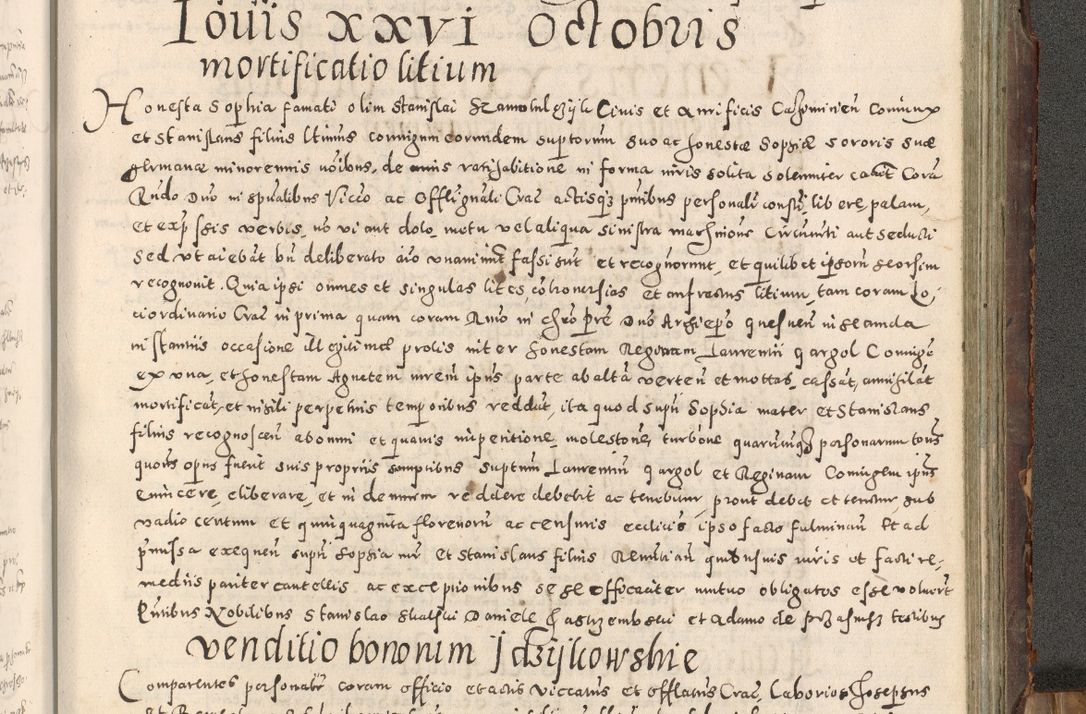 Iovis XXVI Octobris
mortificatio litium
Honesta Sophia famati olim Stanislai Civis et Aurificis Casimirien coniunx
et Stanislaus filius ltimus coniugum eorundem suptorum suo ac honestæ Sophiæ sororis suæ
germanæ minorennis noibus, de cuius ratihabitione in forma iuris solita solenniter cavit Cora
Rndo Dno in spualibus Vicco ac Officij gnali Crac actisqz pntibus personalr constti, libere, palam,
et exp ssis verbis, no vi aut dolo, motu vel aliqua sinistra machinone Circumti aut seducti
sed ut aiebat bn deliberato aio unanimit fassi sut et recognorunt, et quilibet ipsoru seorsim
recognovit. Quia ipsi omnes et singulas lites, cotroversias et anfractus litium, tam coram Lo,
ci ordinario Crac in prima quam coram Rmo in chro pre Dno Archiepo Gnesnen in secunda
instantiis occasione illegitimæ prolis inter honestam Reginam Laurentii Gargol Coniuge
ex una, et honestam Agnetem urem ipius parte ab altå verten et mottas, cassat, annihilat
mortificat, et nihili perpetuis temporibus reddut, ita quod supn Sophia mater et Stanislaus
filius recognoscen ab omni et quavis impetitione, molestone, turbone quarucuqz personarum totius
quoties opus fuerit suis propriis sumptibus suptum Laurentiu Gargol et Reginam Coniugem ipius
evincere, eliberare, et indemnem reddere debebit ac tenebitur, prout debet et tenetur sub
vadio centum et quinquaginta florenoru ac censuris ecclicis ipso facto fulminan Et ad
pmissa exequen supn Sophia mr et Stanislaus filius Renutian quibusvis iuris et facti re,
mediis pariter cautellis ac exceptionibus se se efficaciter mutuo obligatos esse voluert
Pntibus Nobilibus Stanislao Skalski Daniele et Adamo de testibus
venditio bonorum
Comparentes personalr coram officio et actis Viccatus et offlatus Crac, Laborios Josephus